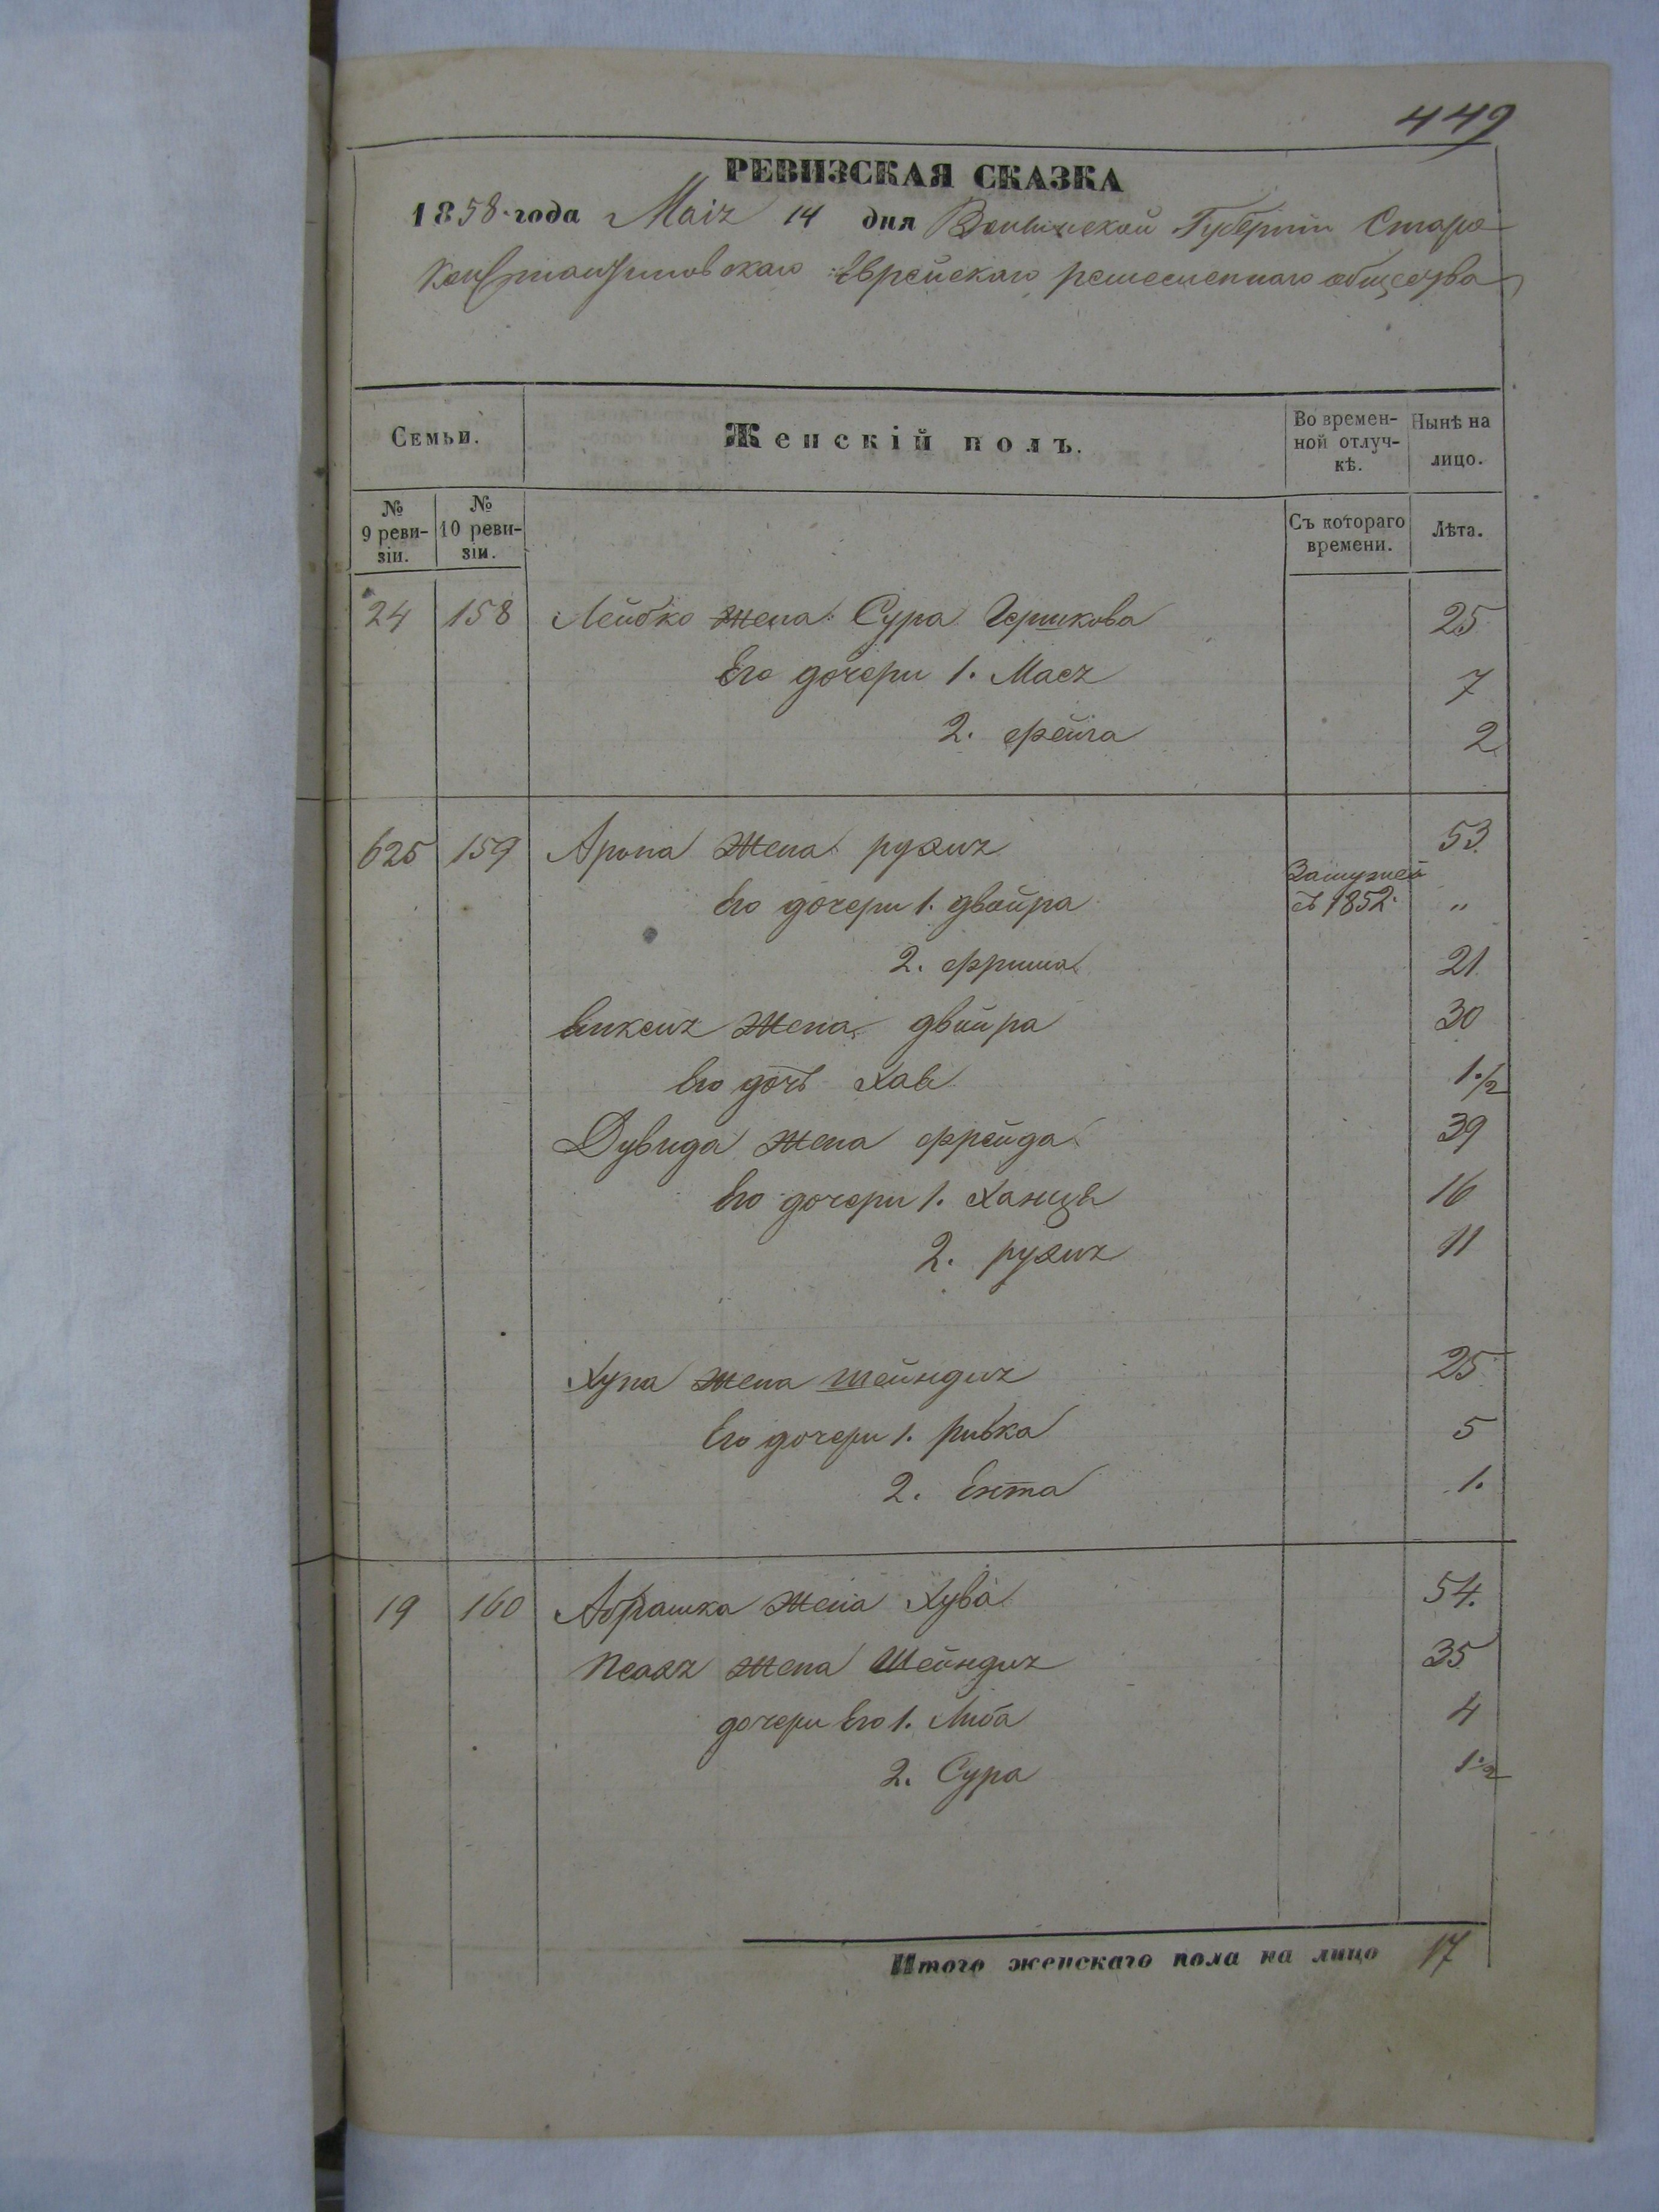 449
РЕВИЗСКАЯ СКАЗКА
1858 года Маія 14 дня Волынской Губерніи Старо
Константиновскаго Еврейскаго ремесленнаго общества
Семьи. Женскій полъ. Во времен-ной отлуч-кѣ. Нынѣ на лицо.
№ 9 реви-зіи. № 10 реви-зіи. Съ котораго времени. Лѣта.
24 158 Лейбко жена Сура Гершкова 25
Его дочери 1. Мася 7
2. фейга 2
625 159 Арона жена рухля 53
Его дочери 1. двойра Замужем съ 1852 "
2. фрима 21
жена двойра 30
Его дочь Хая 1 1/2
Дувида жена фрейда 39
Его дочери 1. Ханця 16
2. рухля 11
Хуна жена шейндля 25
Его дочери 1. ривка 5
2. Ента 1.
19 160 Абрашка жена Хува 54.
жена Шейндля 35
дочери Его 1. Либа 4
2. Сура 1 1/2
Итого женскаго пола на лицо 17